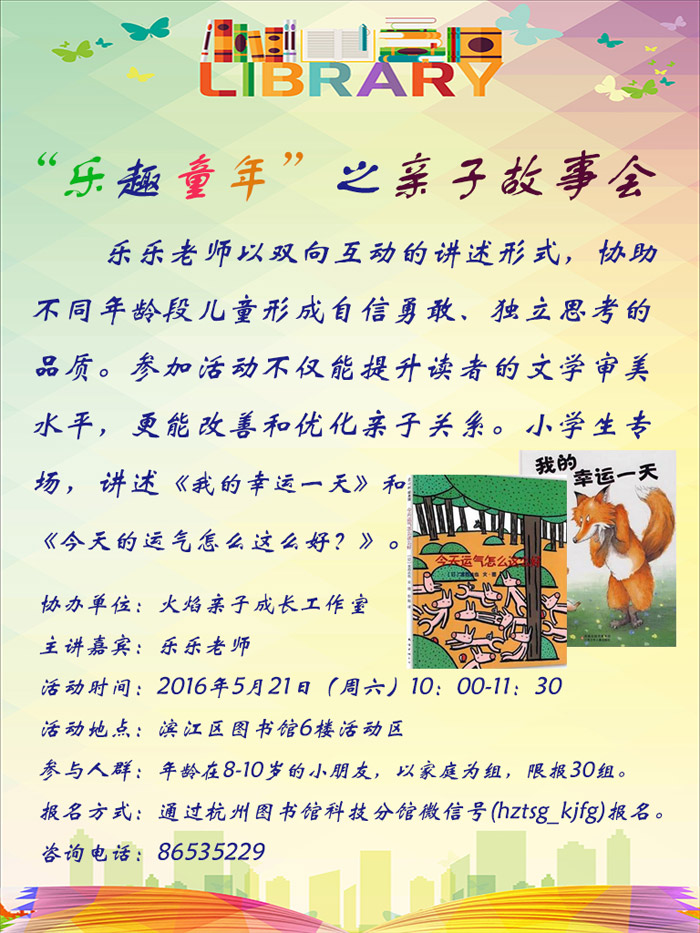 LIBRARY
“乐趣童年”之亲子故事会
乐乐老师以双向互动的讲述形式，协助
不同年龄段儿童形成自信勇敢、独立思考的
品质。参加活动不仅能提升读者的文学审美
水平，更能改善和优化亲子关系。小学生专
场，讲述《我的幸运一天》和
《今天的运气怎么这么好？》。
我的
幸运一天
今天运气怎么这么好
协办单位：火焰亲子成长工作室
主讲嘉宾：乐乐老师
活动时间：2016年5月21日（周六）10：00-11：30
活动地点：滨江区图书馆6楼活动区
参与人群：年龄在8-10岁的小朋友，以家庭为组，限报30组。
报名方式：通过杭州图书馆科技分馆微信号(hztsg_kjfg)报名。
咨询电话：86535229